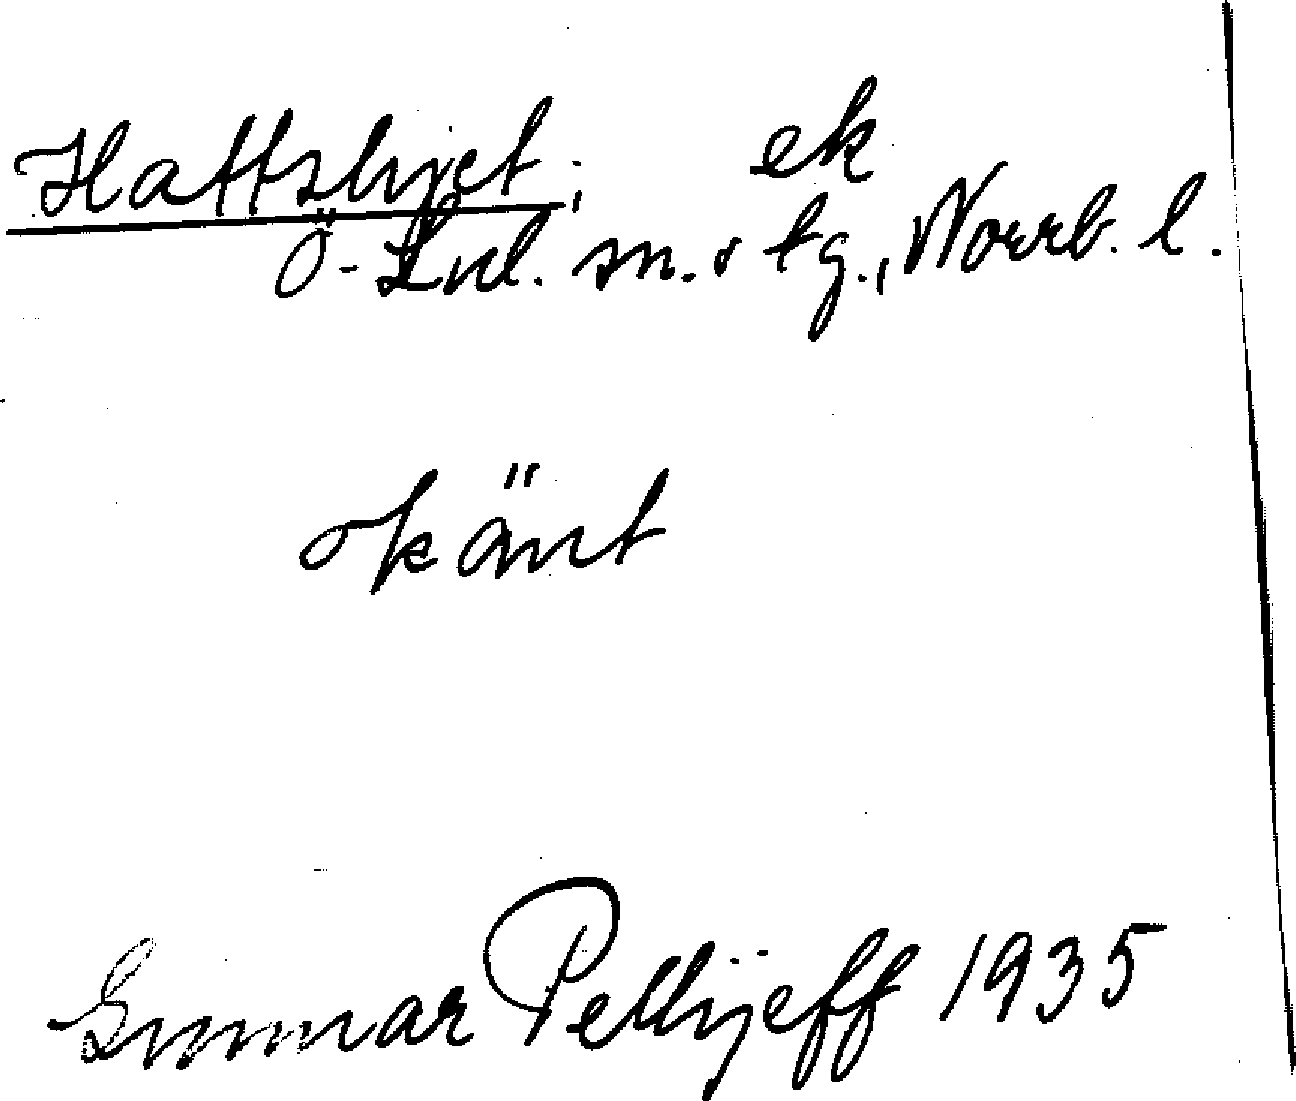 Hattskyet; ek
Ö-Lul. sn. o tg., Norrb. l.
okänt
Gunnar Pellijeff 1935